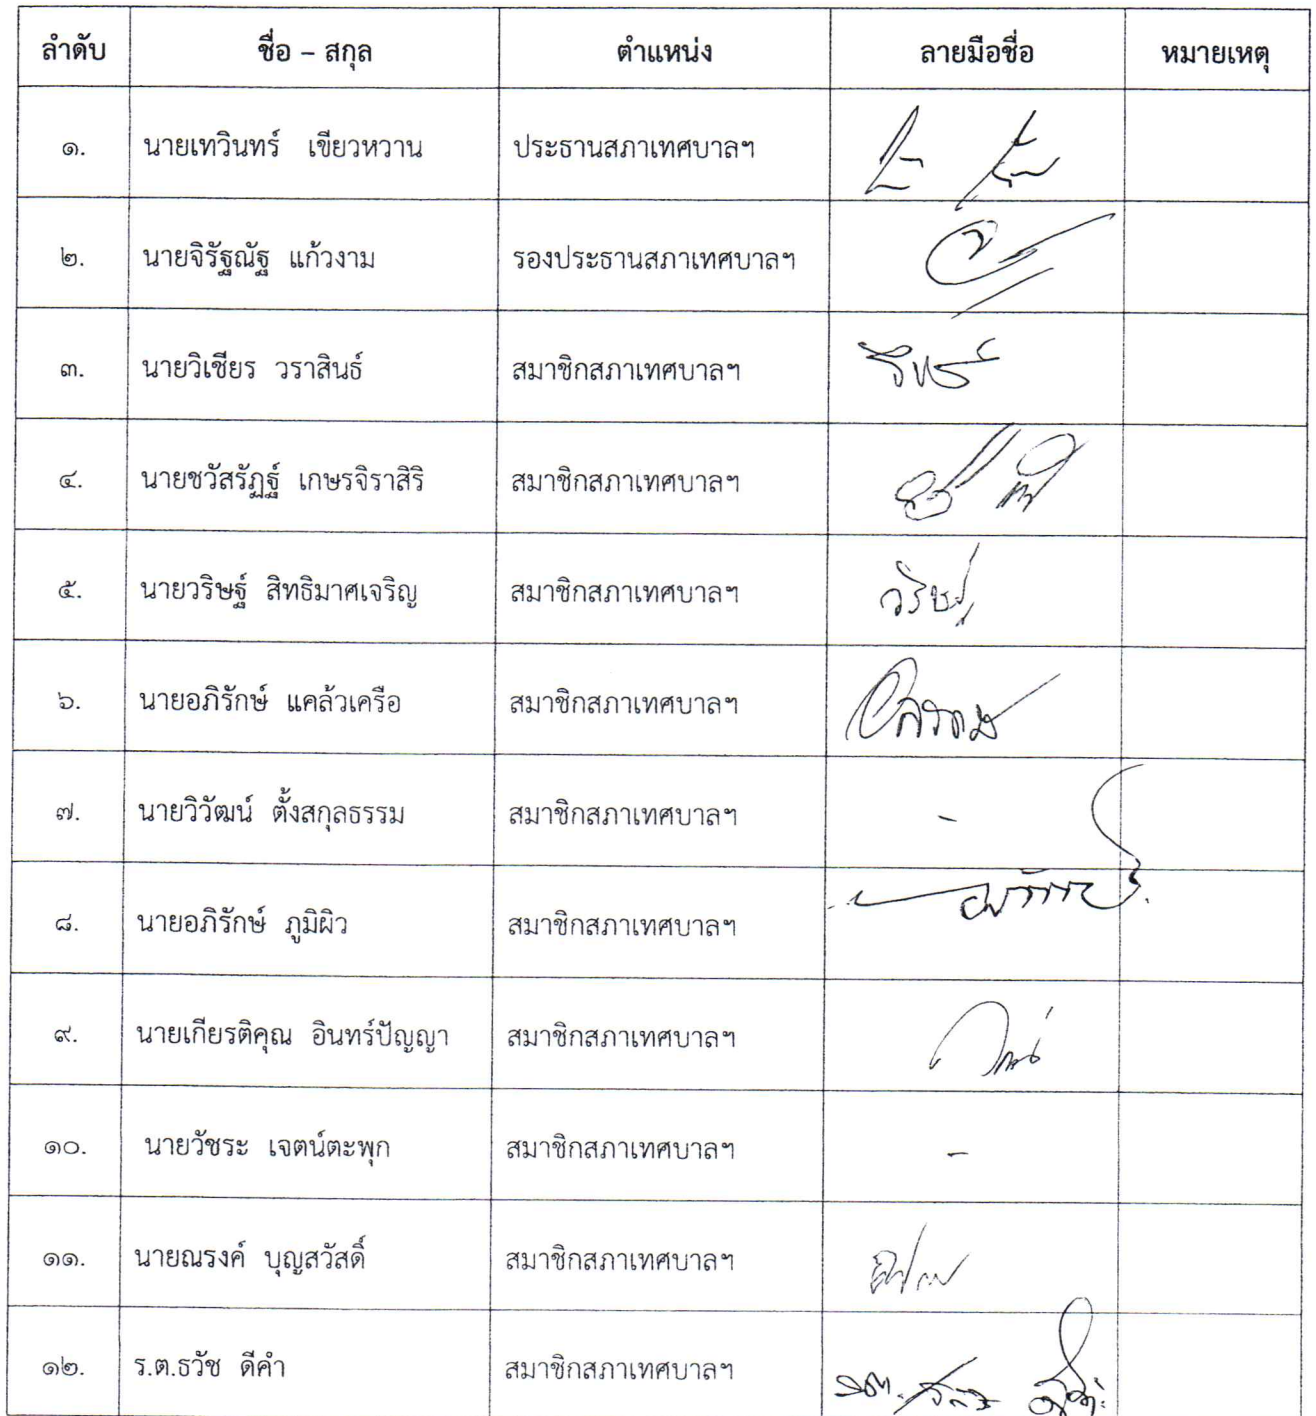 ลำดับ ชื่อ – สกุล ตำแหน่ง ลายมือชื่อ หมายเหตุ
๑. นายเทวินทร์ เขียวหวาน ประธานสภาเทศบาลฯ
๒. นายจิรัฐณัฐ แก้วงาม รองประธานสภาเทศบาลฯ
๓. นายวิเชียร วราสินธ์ สมาชิกสภาเทศบาลฯ
๔. นายชวัสรัฏฐ์ เกษรจิราสิริ สมาชิกสภาเทศบาลฯ
๕. นายวริษฐ์ สิทธิมาศเจริญ สมาชิกสภาเทศบาลฯ วริษฐ์
๖. นายอภิรักษ์ แคล้วเครือ สมาชิกสภาเทศบาลฯ
๗. นายวิวัฒน์ ตั้งสกุลธรรม สมาชิกสภาเทศบาลฯ -
๘. นายอภิรักษ์ ภูมิผิว สมาชิกสภาเทศบาลฯ
๙. นายเกียรติคุณ อินทร์ปัญญา สมาชิกสภาเทศบาลฯ
๑๐. นายวัชระ เจตน์ตะพุก สมาชิกสภาเทศบาลฯ -
๑๑. นายณรงค์ บุญสวัสดิ์ สมาชิกสภาเทศบาลฯ
๑๒. ร.ต.ธวัช ดีคำ สมาชิกสภาเทศบาลฯ